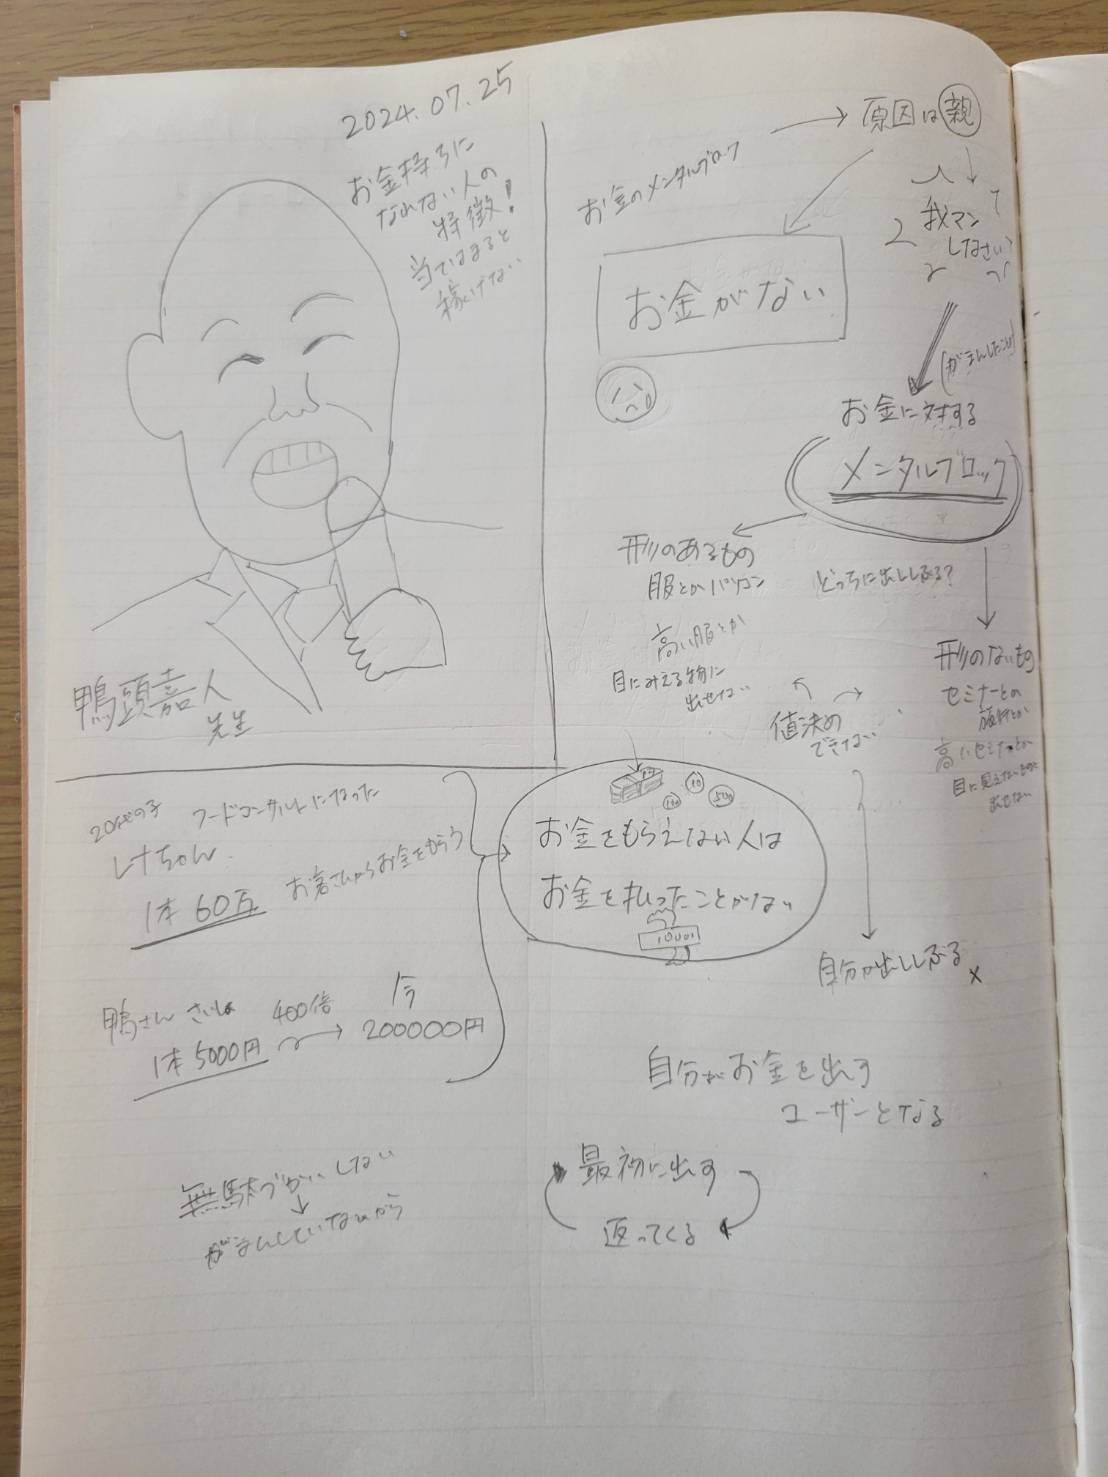 2024.07.25
お金持ちに
なれない人の
特徴!
当てはまると
稼げない
鴨頭嘉人
先生
お金のメンタルブロック
原因は親
我マン
しなさい
お金がない
(がまんしたことが)
お金に対する
メンタルブロック
形のあるもの
服とかパソコン
どっちに出ししぶる?
高い服とか
目にみえる物に
出せない
形のないもの
セミナーとか
旅行とか
高いセミナーとか
目に見えないものに
出せない
値決め
できない
自分が出ししぶる ×
お金をもらえない人は
お金を払ったことがない
10
10000
20代の子
フードコンサルトになった
しゅちゃん
1本 60万
お客さんからお金をもらう
鴨さん さいしょ
1本 5000円
400倍
今
200000円
無駄づかいしない
がまんしていないから
自分がお金を出す
ユーザーとなる
最初に出す
返ってくる